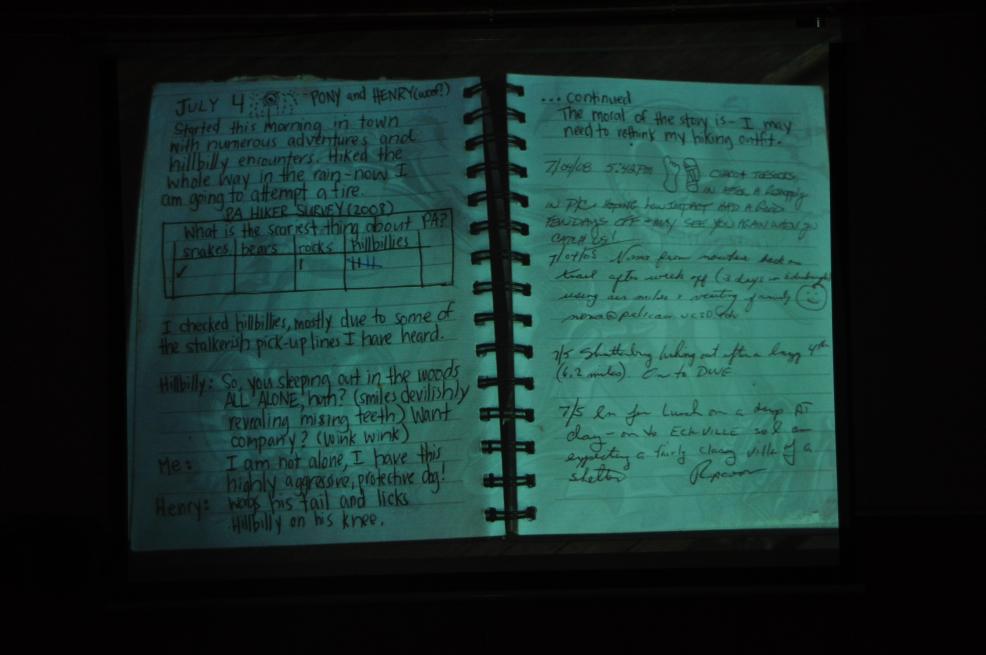 JULY 4 PONY and HENRY (woof?)
Started this morning in town
with numerous adventures and
hillbilly encounters. Hiked the
whole way in the rain-now I
am going to attempt a fire.
PA HIKER SURVEY (2008)
What is the scariest thing about PA?
snakes bears rocks hillbillies
I checked hillbillies, mostly due to some of
the stalkerish pick-up lines I have heard.
Hillbilly: So, you sleeping out in the woods
ALL ALONE, huh? (smiles devilishly
revealing missing teeth) Want
company? (wink wink)
Me: I am not alone, I have this
highly aggressive, protective dog!
Henry: wags his tail and licks
Hillbilly on his knee.
... continued
The moral of the story is- I may
need to rethink my hiking outfit.
7/04/08 5:42PM
IN
IN HOPING LOW IMPACT HAD A GOOD
FEW DAYS OFF - MAY SEE YOU AGAIN WHEN YOU
CATCH US!
7/04/08 from back on
trail after week off (3 days in
using air miles + visiting family
7/5 hiking out after a lazy 4th
(6.2 miles). On to
7/5 In for Lunch on a AT
day - on to ECKVILLE
expecting a fairly classy ville of a
shelter